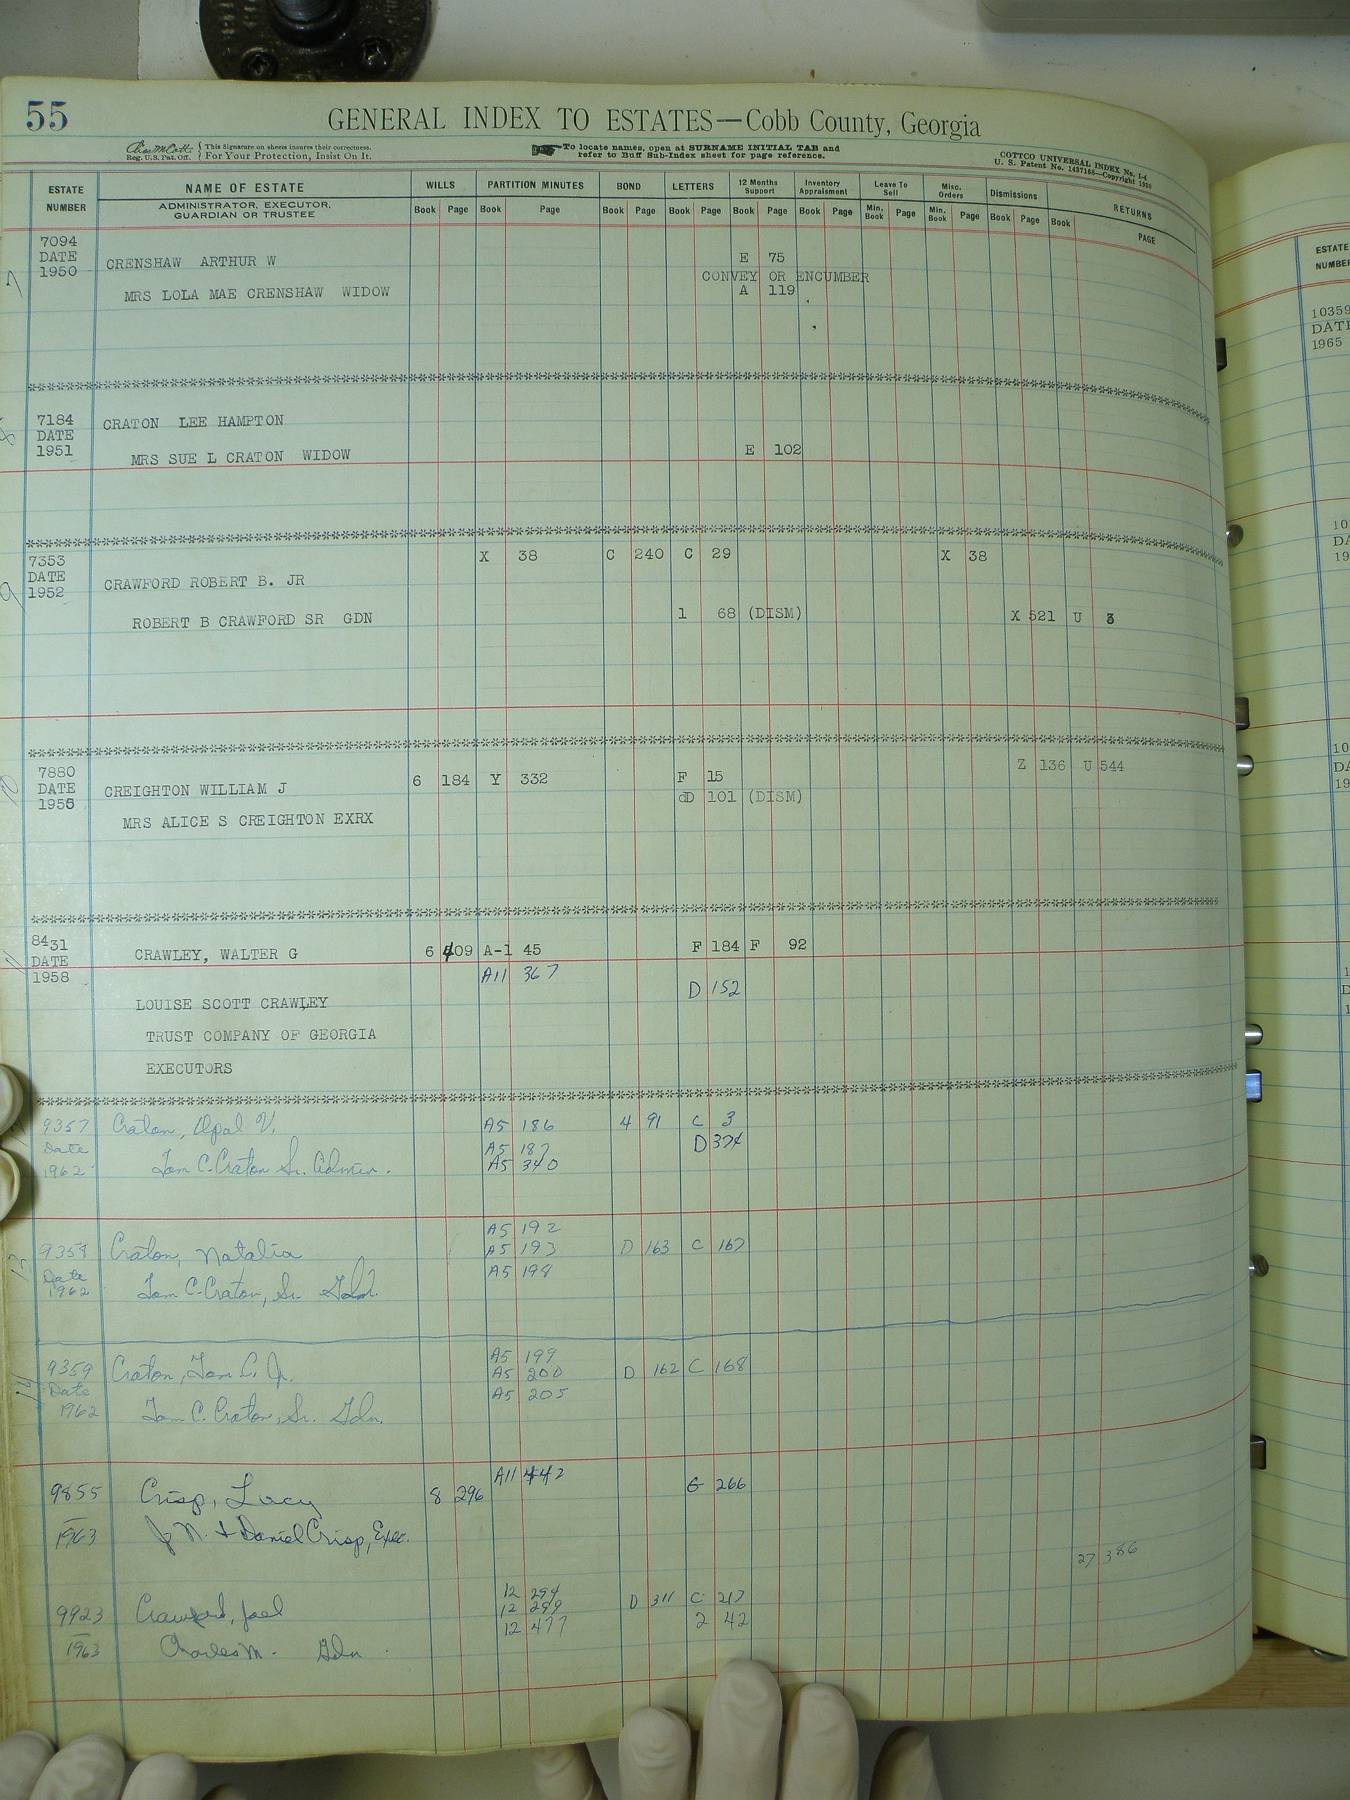 55
GENERAL INDEX TO ESTATES—Cobb County, Georgia
Reg. U.S. Pat. Off. { This Signature on sheets insures their correctness. For Your Protection, Insist On It.
To locate names, open at SURNAME INITIAL TAB and
refer to Buff Sub-Index sheet for page reference.
COTTCO UNIVERSAL INDEX No. 1-4
U. S. Patent No. 1437168—Copyright 1930
ESTATE NUMBER
NAME OF ESTATE
ADMINISTRATOR, EXECUTOR,
GUARDIAN OR TRUSTEE
WILLS PARTITION MINUTES BOND LETTERS 12 Months Support Inventory Appraisment Leave To Sell Misc. Orders Dismissions RETURNS
Book Page Book Page Book Page Book Page Book Page Book Page Min. Book Page Min. Book Page Book Page Book PAGE
7094
DATE
1950
CRENSHAW ARTHUR W
E 75
CONVEY OR ENCUMBER
MRS LOLA MAE CRENSHAW WIDOW
A 119
7184
DATE
1951
CRATON LEE HAMPTON
MRS SUE L CRATON WIDOW
E 102
7353
DATE
1952
X 38 C 240 C 29 X 38
CRAWFORD ROBERT B. JR
ROBERT B CRAWFORD SR GDN
1 68 (DISM) X 521 U 3
7880
DATE
1956
Z 136 U 544
CREIGHTON WILLIAM J
6 184 Y 332 F 15
dD 101 (DISM)
MRS ALICE S CREIGHTON EXRX
8431
DATE
1958
CRAWLEY, WALTER G
6 409 A-1 45 F 184 F 92
A11 367
D 152
LOUISE SCOTT CRAWLEY
TRUST COMPANY OF GEORGIA
EXECUTORS
9357
Date
1962
Craton, Opal V.
A5 186 4 91 C 3
A5 187 D 374
Tom C. Craton Sr. Admin.
A5 340
A5 192
9358
Date
1962
Craton, Natalia
A5 193 D 163 C 167
A5 198
Tom C. Craton, Sr. Gdn.
A5 199
9359
Date
1962
Craton, Tom C. Jr.
A5 200 D 162 C 168
A5 205
Tom C. Craton, Sr. Gdn.
A11 442
9855
1963
Crisp, Lucy
8 296 G 266
J. N. & Daniel Crisp, Exec.
27 386
12 294
9923
1963
Crawford, Joel
12 299 D 311 C 217
12 477 2 42
Charles M. Gdn
ESTATE
NUMBER
10359
DATE
1965